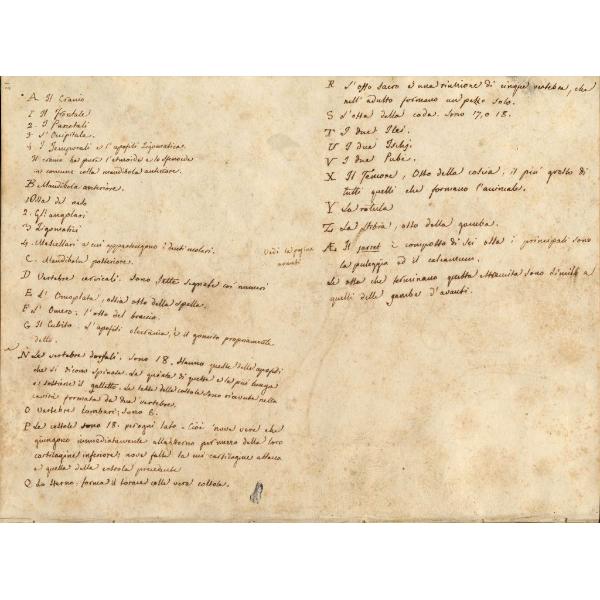 A Il Cranio
1 Il Frontale
2. I Parietali
3 L'Occipitale.
4 I Temporali e l'apofisi Zigomatica.
Il cranio ha pure l'etmoide e lo sfenoide
in comune colla mandibola anteriore.
B Mandibola anteriore.
1 Ossa del naso
2. Gli angolari
3 Zigomatici
4. Mascellari a cui appartengono i denti molari.
C. Mandibola posteriore.
D Vertebre cervicali. Sono sette segnate coi numeri
E L'Omoplata, ossia osso della spalla.
F L'Omero: l'osso del braccio.
G Il Cubito. L'apofisi è il gomito propriamente
detto.
Vedi la pagina
avanti
N Le vertebre dorsali. Sono 18. Hanno queste delle apofisi
che si dicono spinose. La quinta di queste è la più lunga
e sostiene il garrese. Le teste delle costole sono ricevute nella
cavità formata da due vertebre.
O Vertebre lombari; sono 6.
P Le costole sono 18. per ogni lato. Cioè nove vere che
giungono immediatamente allo sterno per mezzo della loro
cartilagine inferiore; nove false la cui cartilagine attacca
a quella della costola precedente
Q Lo Sterno: forma il torace colle vere costole.
R L'osso sacro è una riunione di cinque vertebre, che
nell'adulto formano un pezzo solo.
S L'ossa della coda. Sono 17, o 18.
T I due Ilei.
U I due Ischj.
V I due Pube.
X Il Femore, Osso della coscia, il più grosso di
tutti quelli che formano l'animale.
Y La rotula
Z La tibia, osso della gamba.
Æ Il jarret è composto di sei ossa i principali sono
la puleggia ed il calcaneum.
Le ossa che terminano questa estremità sono simili a
quelli delle gambe d'avanti.